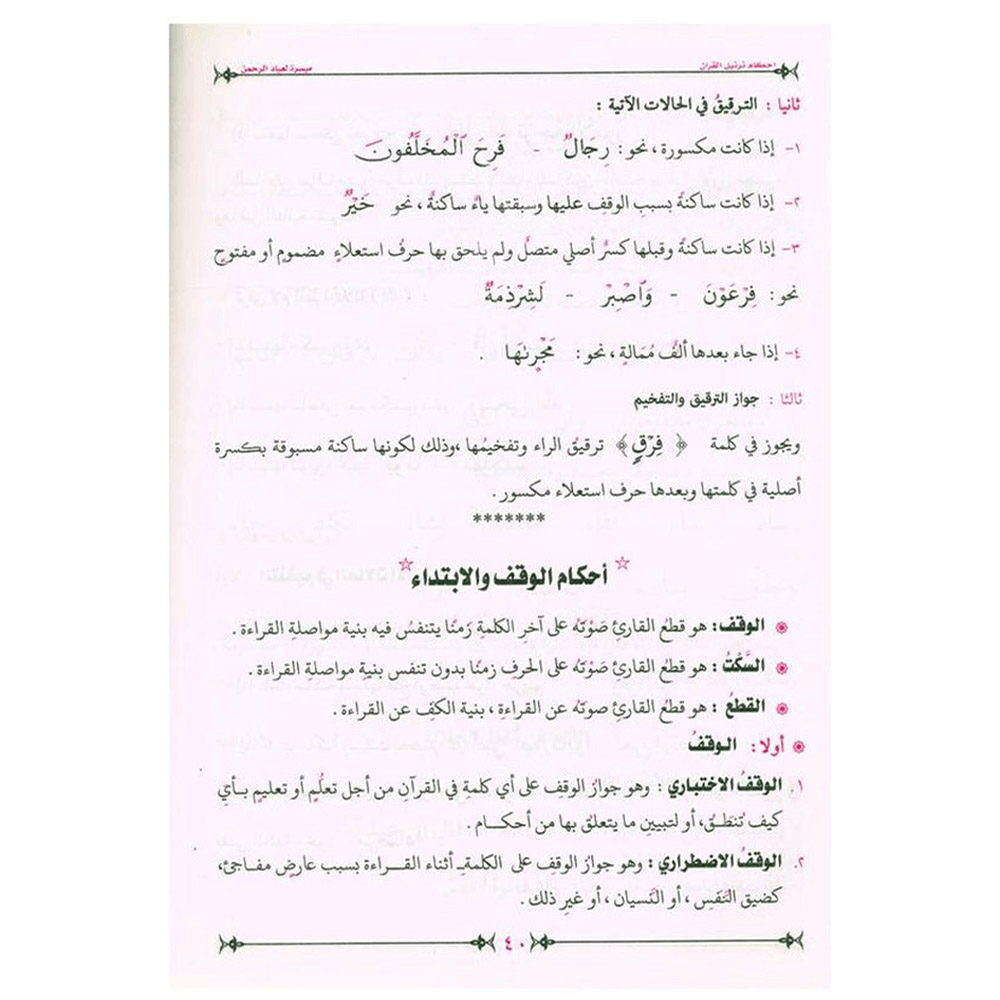 احكام ترتيل القرآن
ميسرة لعباد الرحمن
ثانيا : الترقيقُ في الحالات الآتية :
١- إذا كانت مكسورة ، نحو : رِجَالٌ - فَرِحَ ٱلْمُخَلَّفُونَ
٢- إذا كانت ساكنةً بسببِ الوقفِ عليها وسبقتها ياءٌ ساكنةٌ ، نحو خَيْرٌ
٣- إذا كانت ساكنةً وقبلها كسرٌ أصلي متصلٌ ولم يلحق بها حرفُ استعلاءٍ مضمومٍ أو مفتوحٍ
نحو : فِرْعَوْنَ - وَٱصْبِرْ - لَشِرْذِمَةٌ
٤- إذا جاء بعدها ألفٌ مُمَالةٍ ، نحو : مَجْر۪ىٰهَا .
ثالثا : جواز الترقيق والتفخيم
ويجوز في كلمة ﴿ فِرْقٍ ﴾ ترقيقُ الراء وتفخيمُها ،وذلك لكونها ساكنة مسبوقة بكسرة
أصلية في كلمتها وبعدها حرف استعلاء مكسور .
*******
أحكام الوقف والابتداء
الوقف: هو قطعُ القارئِ صَوْتَه على آخرِ الكلمةِ زمنًا يتنفسُ فيه بنية مواصلةِ القراءة .
السَّكْتُ : هو قطعُ القارئِ صَوْتَه على الحرفِ زمنًا بدون تنفس بنية مواصلةِ القراءة .
القطعُ : هو قطعُ القارئِ صوتَه عن القراءةِ ، بنية الكفِ عن القراءة .
أولا: الوقفُ
١. الوقفُ الاختباري : وهو جوازُ الوقفِ على أي كلمةٍ في القرآنِ من أجل تعلُّمٍ أو تعليمٍ بـأي
كيف تُنطَـق، أو لتبيينِ ما يتعلق بها من أحكـام .
٢. الوقفُ الاضطراري : وهو جوازُ الوقفِ على الكلمةِ أثناء القراءة بسبب عارضٍ مفاجئ،
كضيقِ النَّفَسِ ، أو النِّسيان ، أو غيرِ ذلك .
٤٠